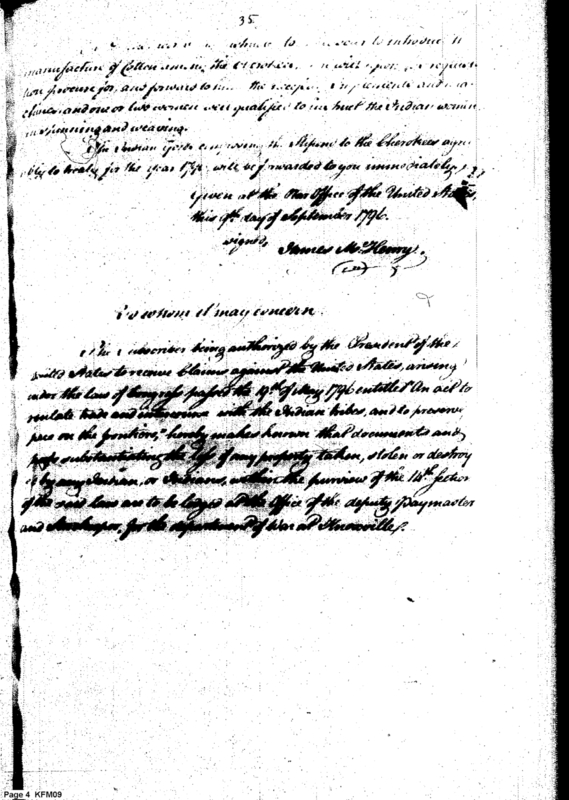 35.
to introduce
manufacture of Cotton among the Cherokees, will upon
procure for, and forward to the
and one or two women well qualified to instruct the Indian women
in spinning and weaving.
The Indian goods composing the Stipend to the Cherokees agre
ably to treaty for the year 1796 will be forwarded to you immediately.
Given at the War Office of the United States,
this 9th day of September 1796.
signed,
James McHenry.
To whom it may concern.
The subscriber being authorized by the President of the
United States to receive Claims against the United States, arising
under the law of Congress passed the 19th of May 1796 entitled "An act to
regulate trade and intercourse with the Indian tribes, and to preserve
peace on the frontiers," hereby makes known that documents and
proofs substantiating the loss of any property taken, stolen or destroy
by any Indian, or Indians, within the purview of the 14th section
of the said law are to be lodged at the Office of the deputy Paymaster
and Storekeeper, for the department of War at Knoxville.
Page 4 KFM09